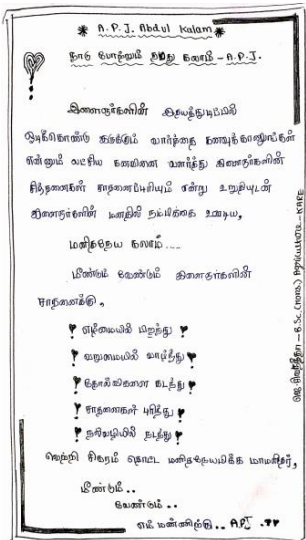 A. P. J. Abdul Kalam
நாடு போற்றும் நமது கலாம் - A.P.J.
இளைஞர்களின் இதயத்துடிப்பில்
ஓடிக்கொண்டு இருக்கும் வார்த்தை கனவுக்காணுங்கள்
என்னும் லட்சிய கனவினை வளர்த்து இளைஞர்களின்
சிந்தனைகள் சாதனைபேசியும் என்று உறுதியுடன்
இளைஞர்களின் மனதில் நம்பிக்கை ஊட்டிய,
மனிதநேய கலாம்....
மீண்டும் வேண்டும் இளைஞர்களின்
சாதனைக்கு,
எளிமையில் பிறந்து
வறுமையில் வாழ்ந்து
தோல்விகளை கடந்து
சாதனைகள் புரிந்து
நல்வழியில் நடந்து
வெற்றி சிகரம் தொட்ட மனிதநேயமிக்க மாமனிதர்,
மீண்டும்..
வேண்டும்..
எம் மண்ணிற்கு.. APJ.
B.Sc.(Hons.) Agriculture - KARE